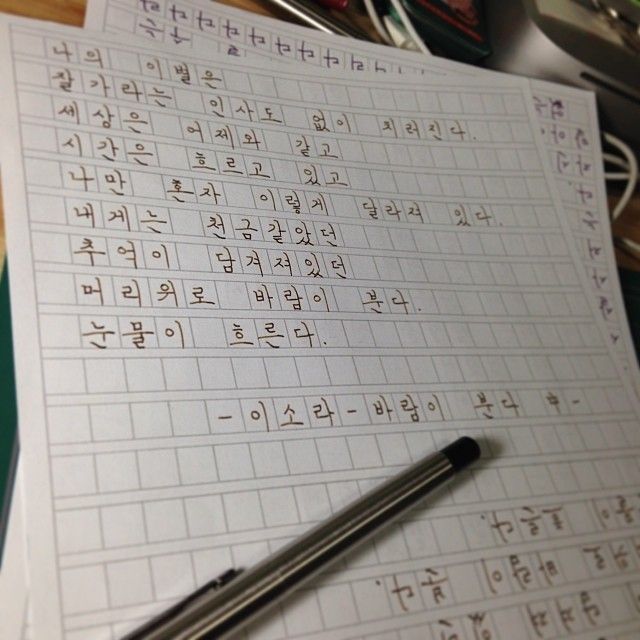 나의 이별은
잘가라는 인사도 없이 치러진다.
세상은 어제와 같고
시간은 흐르고 있고
나만 혼자 이렇게 달라져 있다.
내게는 천금같았던
추억이 담겨져있던
머리위로 바람이 분다.
눈물이 흐른다.
-이소라-바람이 분다 中-